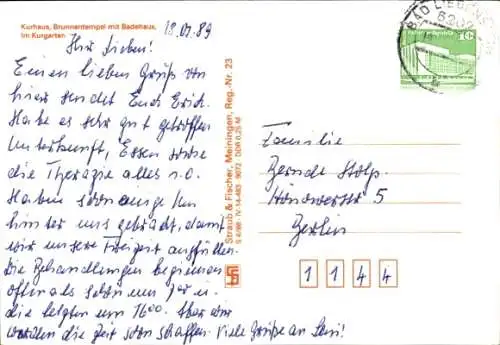 Kurhaus, Brunnentempel mit Badehaus,
im Kurgarten
18.07.89
Ihr Lieben!
Einen lieben Gruß von
hier sendet Euch Erich.
Habe es sehr gut getroffen
Unterkunft, Essen sowie
die Therapie alles n.O.
Haben schon einige km
hinter uns gebracht, damit
wir unsere Freizeit ausfüllen.
Die Behandlungen beginnen
oft als schon um 7ºº u.
die letzten um 16ºº. Aber wir
werden die Zeit schon schaffen. Viele Grüße an
Straub & Fischer, Meiningen, Reg.-Nr. 23
DDR 0,25 M
BAD LIEBENSTEIN
6202
10
Familie
Bernde Stolp
5
Berlin
1 1 4 4